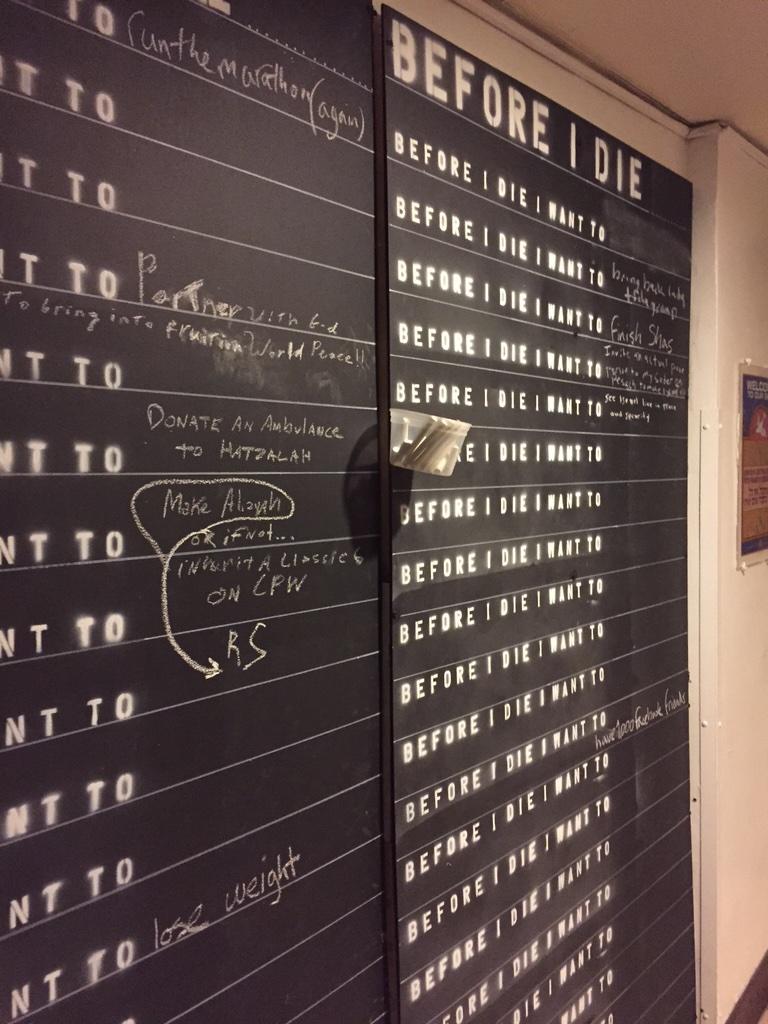 TO run the marathon (again)
NT TO
NT TO
NT TO Partner with G-d
To bring into fruition World Peace!!
NT TO
DONATE AN AMBULANCE
NT TO TO HATZALAH
Make Aliyah
NT TO OR if NOT...
INHERIT A CLASSIC 6
ON CPW
NT TO RS
NT TO
NT TO
NT TO
NT TO lose weight
BEFORE I DIE
BEFORE I DIE I WANT TO
BEFORE I DIE I WANT TO bring back
BEFORE I DIE I WANT TO finish Shas
BEFORE I DIE I WANT TO
BEFORE I DIE I WANT TO see Israel live in peace
and security
E I DIE I WANT TO
BEFORE I DIE I WANT TO
BEFORE I DIE I WANT TO
BEFORE I DIE I WANT TO
BEFORE I DIE I WANT TO
BEFORE I DIE I WANT TO
BEFORE I DIE I WANT TO have 1000 facebook friends
BEFORE I DIE I WANT TO
BEFORE I DIE I WANT TO
BEFORE I DIE I WANT TO
BEFORE I DIE I WANT TO
I DIE I WANT TO
WELCO